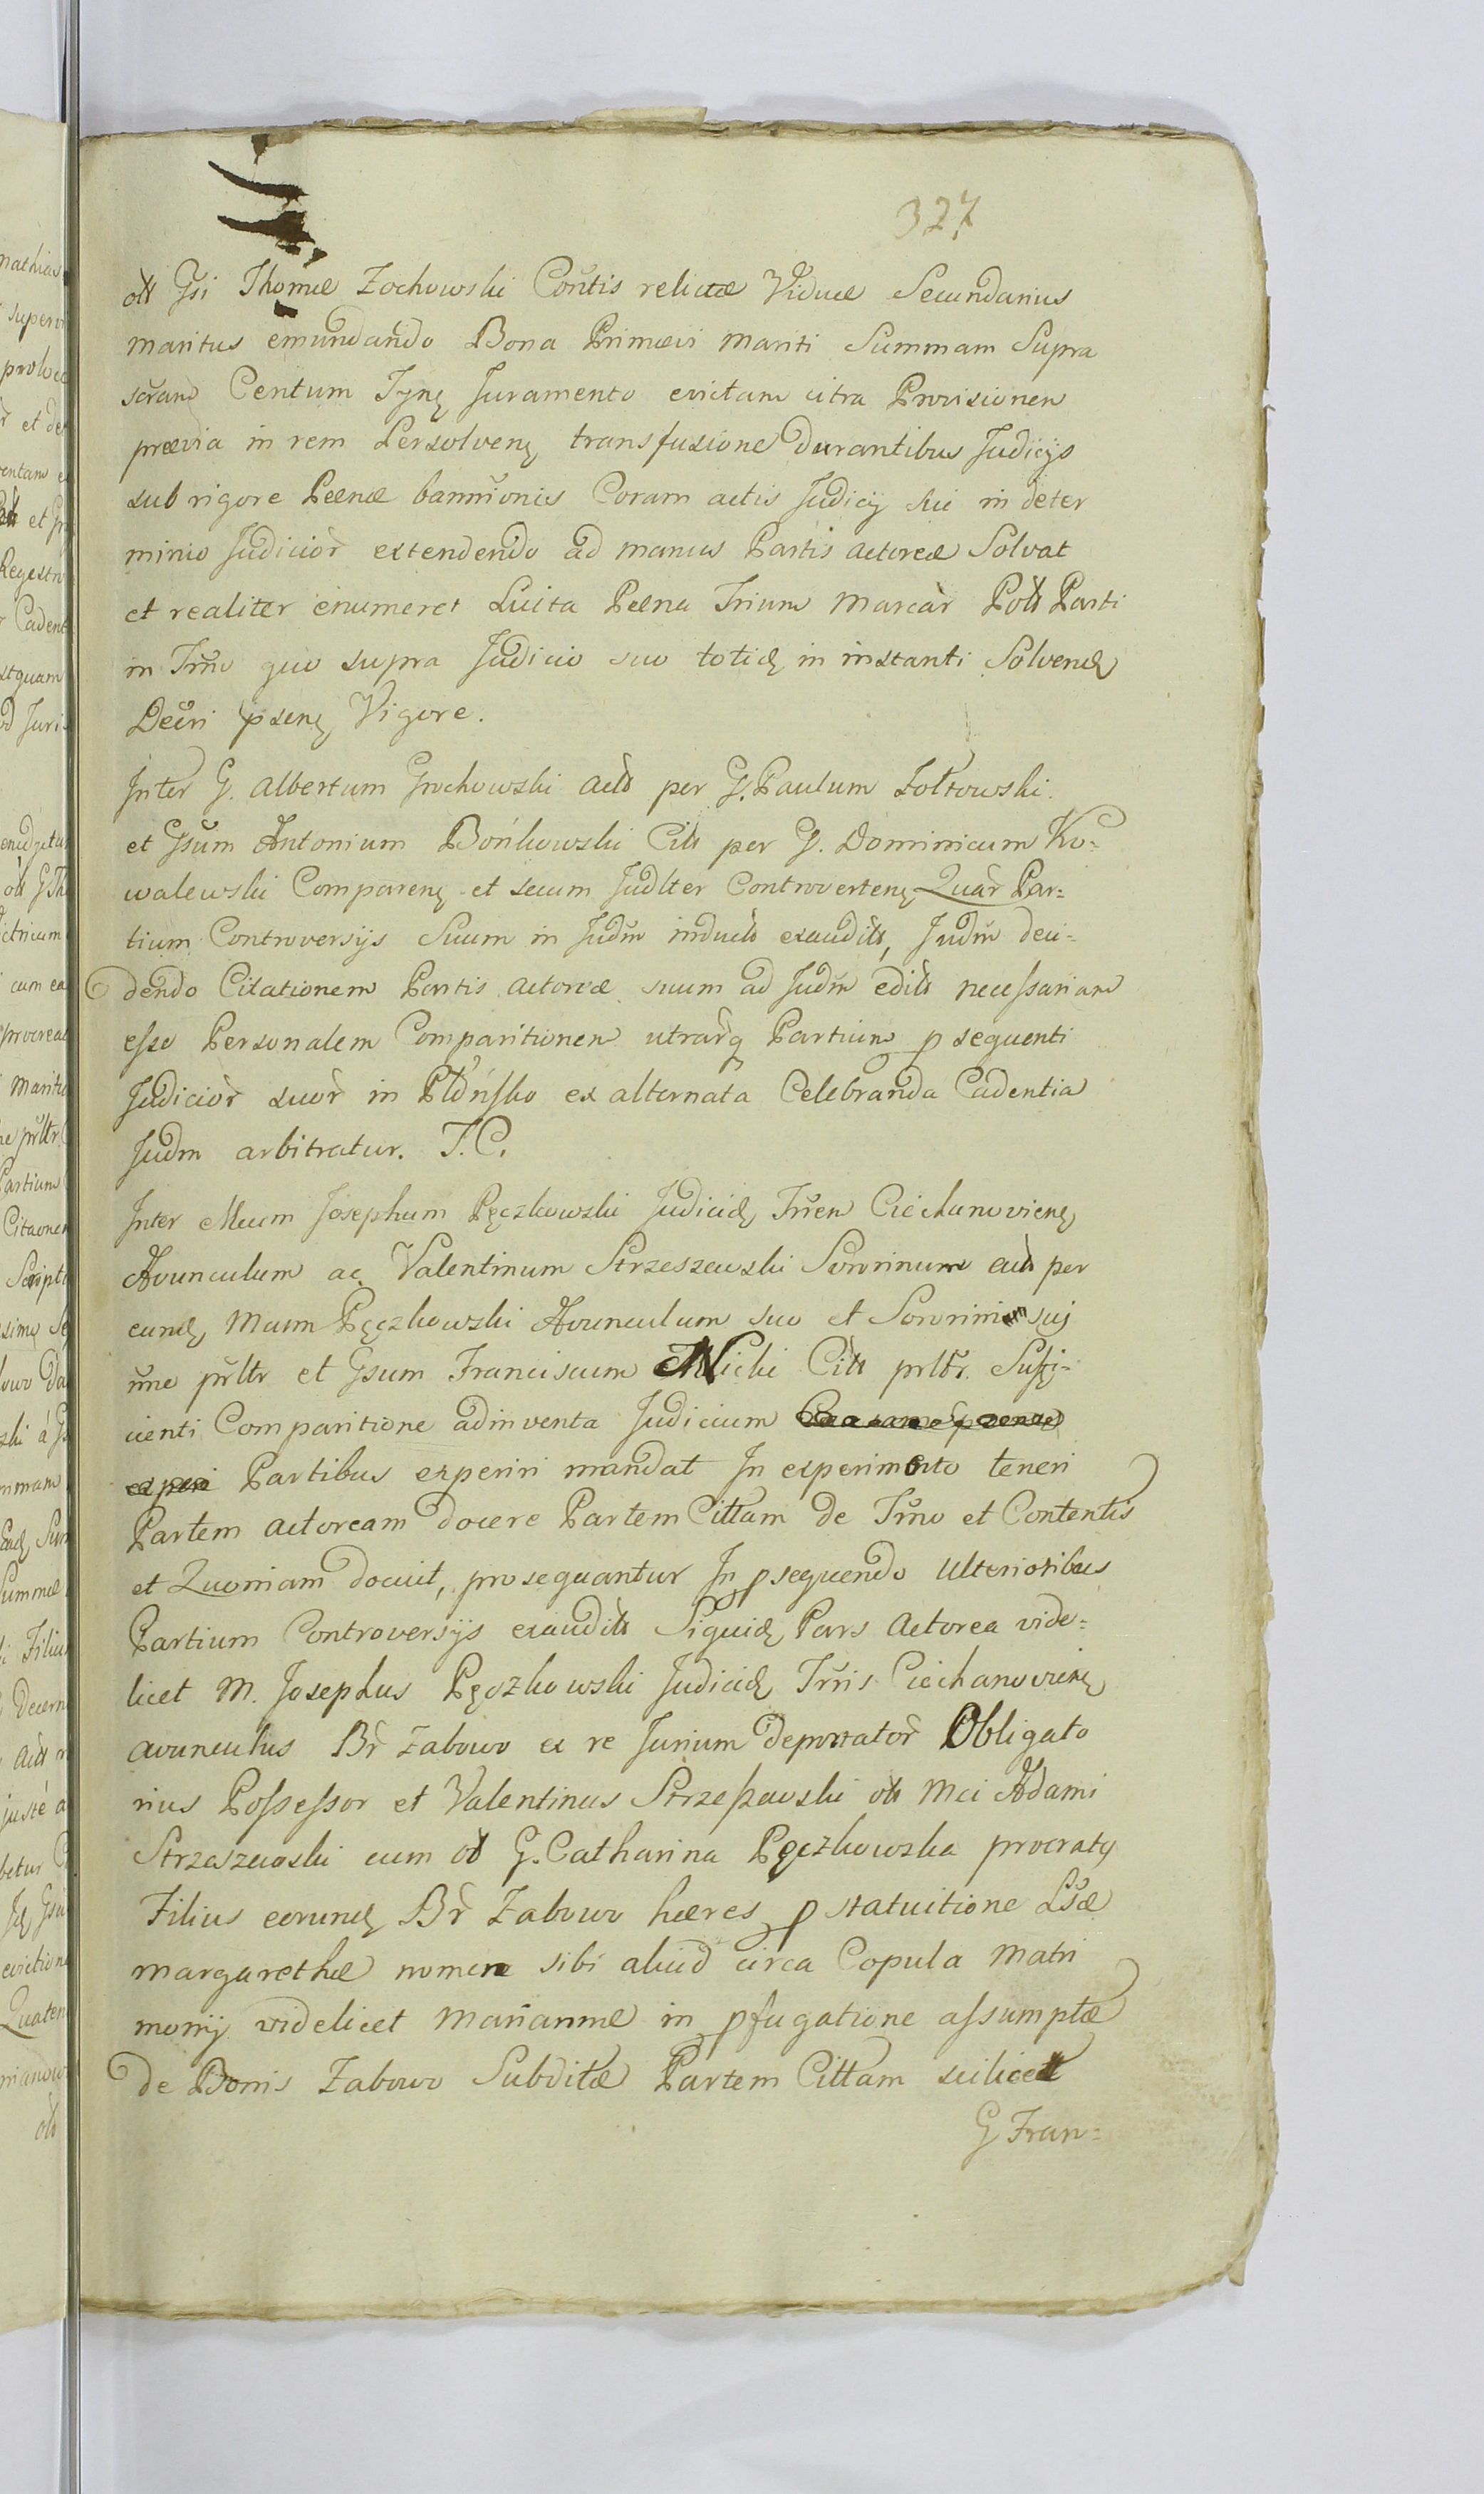 327
olt Gsi Thomæ Zochowski Contis relictæ Viduæ Secundarius
maritus emundando Bona Primævi mariti Summam Supra
scram Centum Tynf Juramento evictam citra Provisionem
prævia in rem Persolvenę transfusione Durantibus Judicijs
sub rigore Pænæ bannionis Coram actis Judicij sui in deter
minio Judicior extendendo ad manus Partis actoreæ Solvat
et realiter enumeret Luita Pæna Trium Marcar Poll Parti
in Trno quo supra Judicio suo totid in instanti Solvend
Decri psenę Vigore.
Inter G. Albertum Grochowski Act per G. Paulum Zołtowski
et Gsum Antonium Bońkowski Citt per G. Dominicum Ko=
walewski Comparenę et secum Judlter Controvertenę Quar Par=
tium Controversijs Suum in Judm inductt exauditt, Judm deci=
dendo Citationem Partis Actoreæ suum ad Judm editt necessariam
esse Personalem Comparitionem utrarq Partium p sequenti
Judicior suor in Płońsko ex alternata Celebranda Cadentia
Judm arbitratur. T. C.
Inter Mcum Josephum Pęczkowski Judicid Trren Ciechanovienę
Avunculum ac Valentinum Strzeszewski Sororinum act per
eund Mcum Pęczkowski Avunculum suo et Sororini sui
nne prltr et Gsum Franciscum Milicki Citt prltr. Suffi=
cienti Comparitione adinventa Judicium
Partibus experiri mandat In experimento teneri
Partem actoream docere Partem Cittam de Trno et Contentis
et Quoniam docuit, prosequantur In psequendo Ulterioribus
Partium Controversijs exauditt Siquid Pars Actorea vide=
licet M. Josephus Pęczkowski Judicid Trris Ciechanovienę
avunculus Br Zabowo ex re Jurium deportator Obligato
rius Possessor et Valentinus Strzeszewski olt Mci Adami
Strzeszewski cum olt G. Catharina Pęczkowska procratg
Filius eorund Br Zabowo hæres p statuitione Lsæ
Margarethæ nomine sibi aliud circa Copula Matri
monij videlicet Mariannæ in pfugatione assumptæ
de Bonis Zabowo Subditæ Partem Cittam scilicet
G Fran=